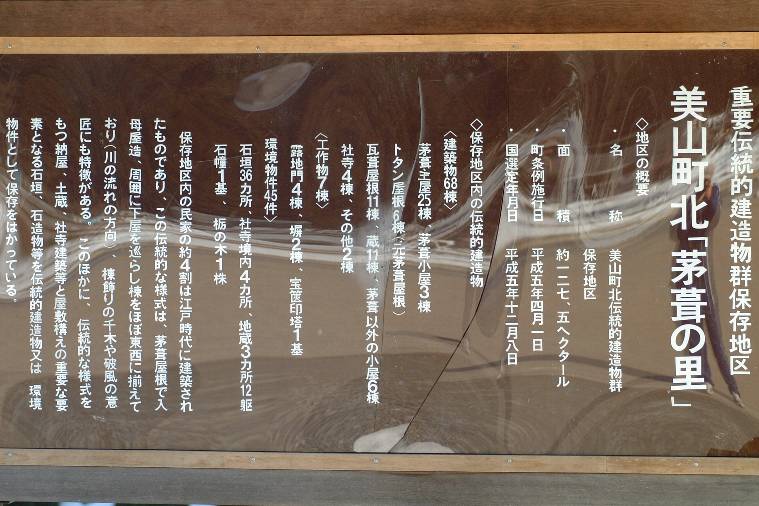 重要伝統的建造物群保存地区
美山町北「茅葺の里」
◇地区の概要
・名　称　美山町北伝統的建造物群
保存地区
・面　積　約一二七、五ヘクタール
・町条例施行日　平成五年四月一日
・国選定年月日　平成五年十二月八日
◇保存地区内の伝統的建造物
〈建築物68棟〉
茅葺主屋25棟、茅葺小屋3棟
トタン屋根6棟（元茅葺屋根）
瓦葺屋根11棟、蔵11棟、茅葺以外の小屋6棟
社寺4棟、その他2棟
〈工作物7棟〉
露地門4棟、塀2棟、宝篋印塔1基
環境物件45件〉
石垣36カ所、社寺境内4カ所、地蔵3カ所12躯
石幢1基、栃の木1株
保存地区内の民家の約4割は江戸時代に建築され
たものであり、この伝統的な様式は、茅葺屋根で入
母屋造、周囲に下屋を巡らし棟をほぼ東西に揃えて
おり（川の流れの方向）、棟飾りの千木や破風の意
匠にも特徴がある。このほかに、伝統的な様式を
もつ納屋、土蔵、社寺建築等と屋敷構えの重要な要
素となる石垣、石造物等を伝統的建造物又は　環境
物件として保存をはかっている。